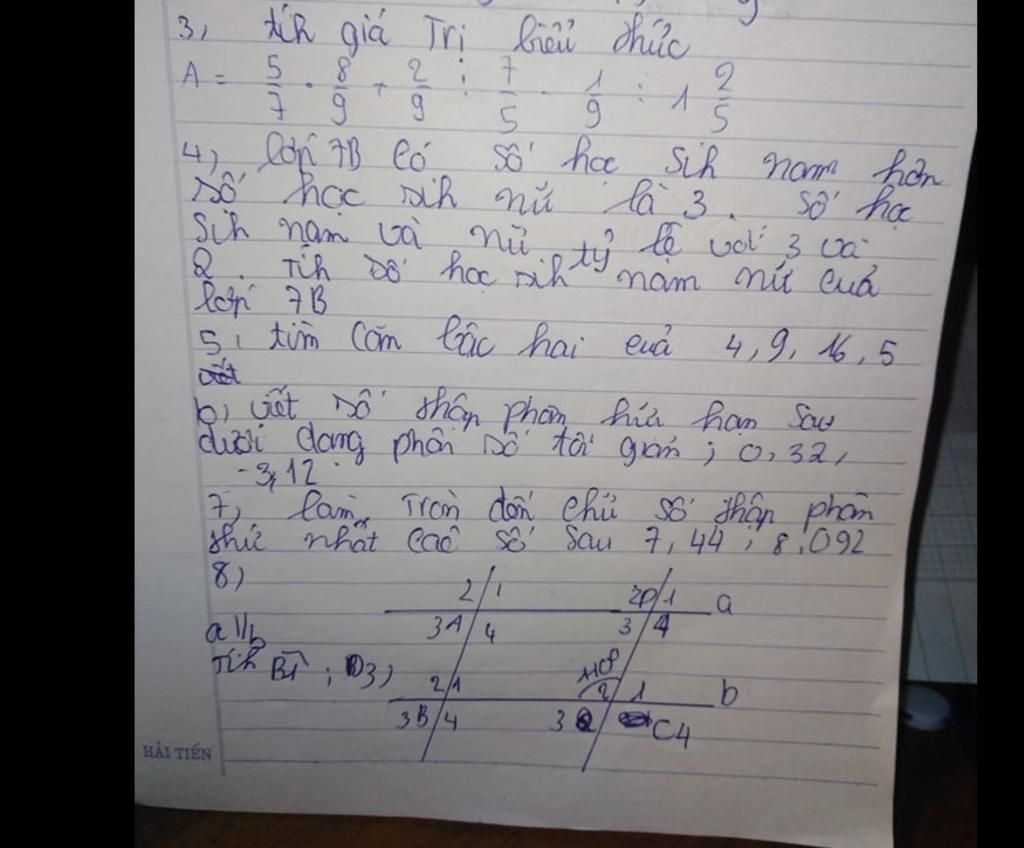 3, tíh giá Trị biểu thức
A = 5/7 . 8/9 + 2/9 : 7/5 - 1/9 : 1 2/5
4, lớp 7B có số học sih nam hơn
số học sih nữ là 3. Số học
Sih nam và nữ tỷ lệ với 3 và
2. Tíh số học sih nam nữ của
lớp 7B
5, tìm căn bậc hai của 4, 9, 16, 5
b, viết số thập phân hữu hạn sau
dưới dạng phân số tối giản; 0,32,
-3,12
7, làm tròn đến chữ số thập phân
thứ nhất các số sau 7,44; 8,092
8)
2 1 2D 1 a
3A 4 3 4
a//b
Tíh B1; D3)
110°
2 1 2 1 b
3B 4 3 C4
HẢI TIẾN